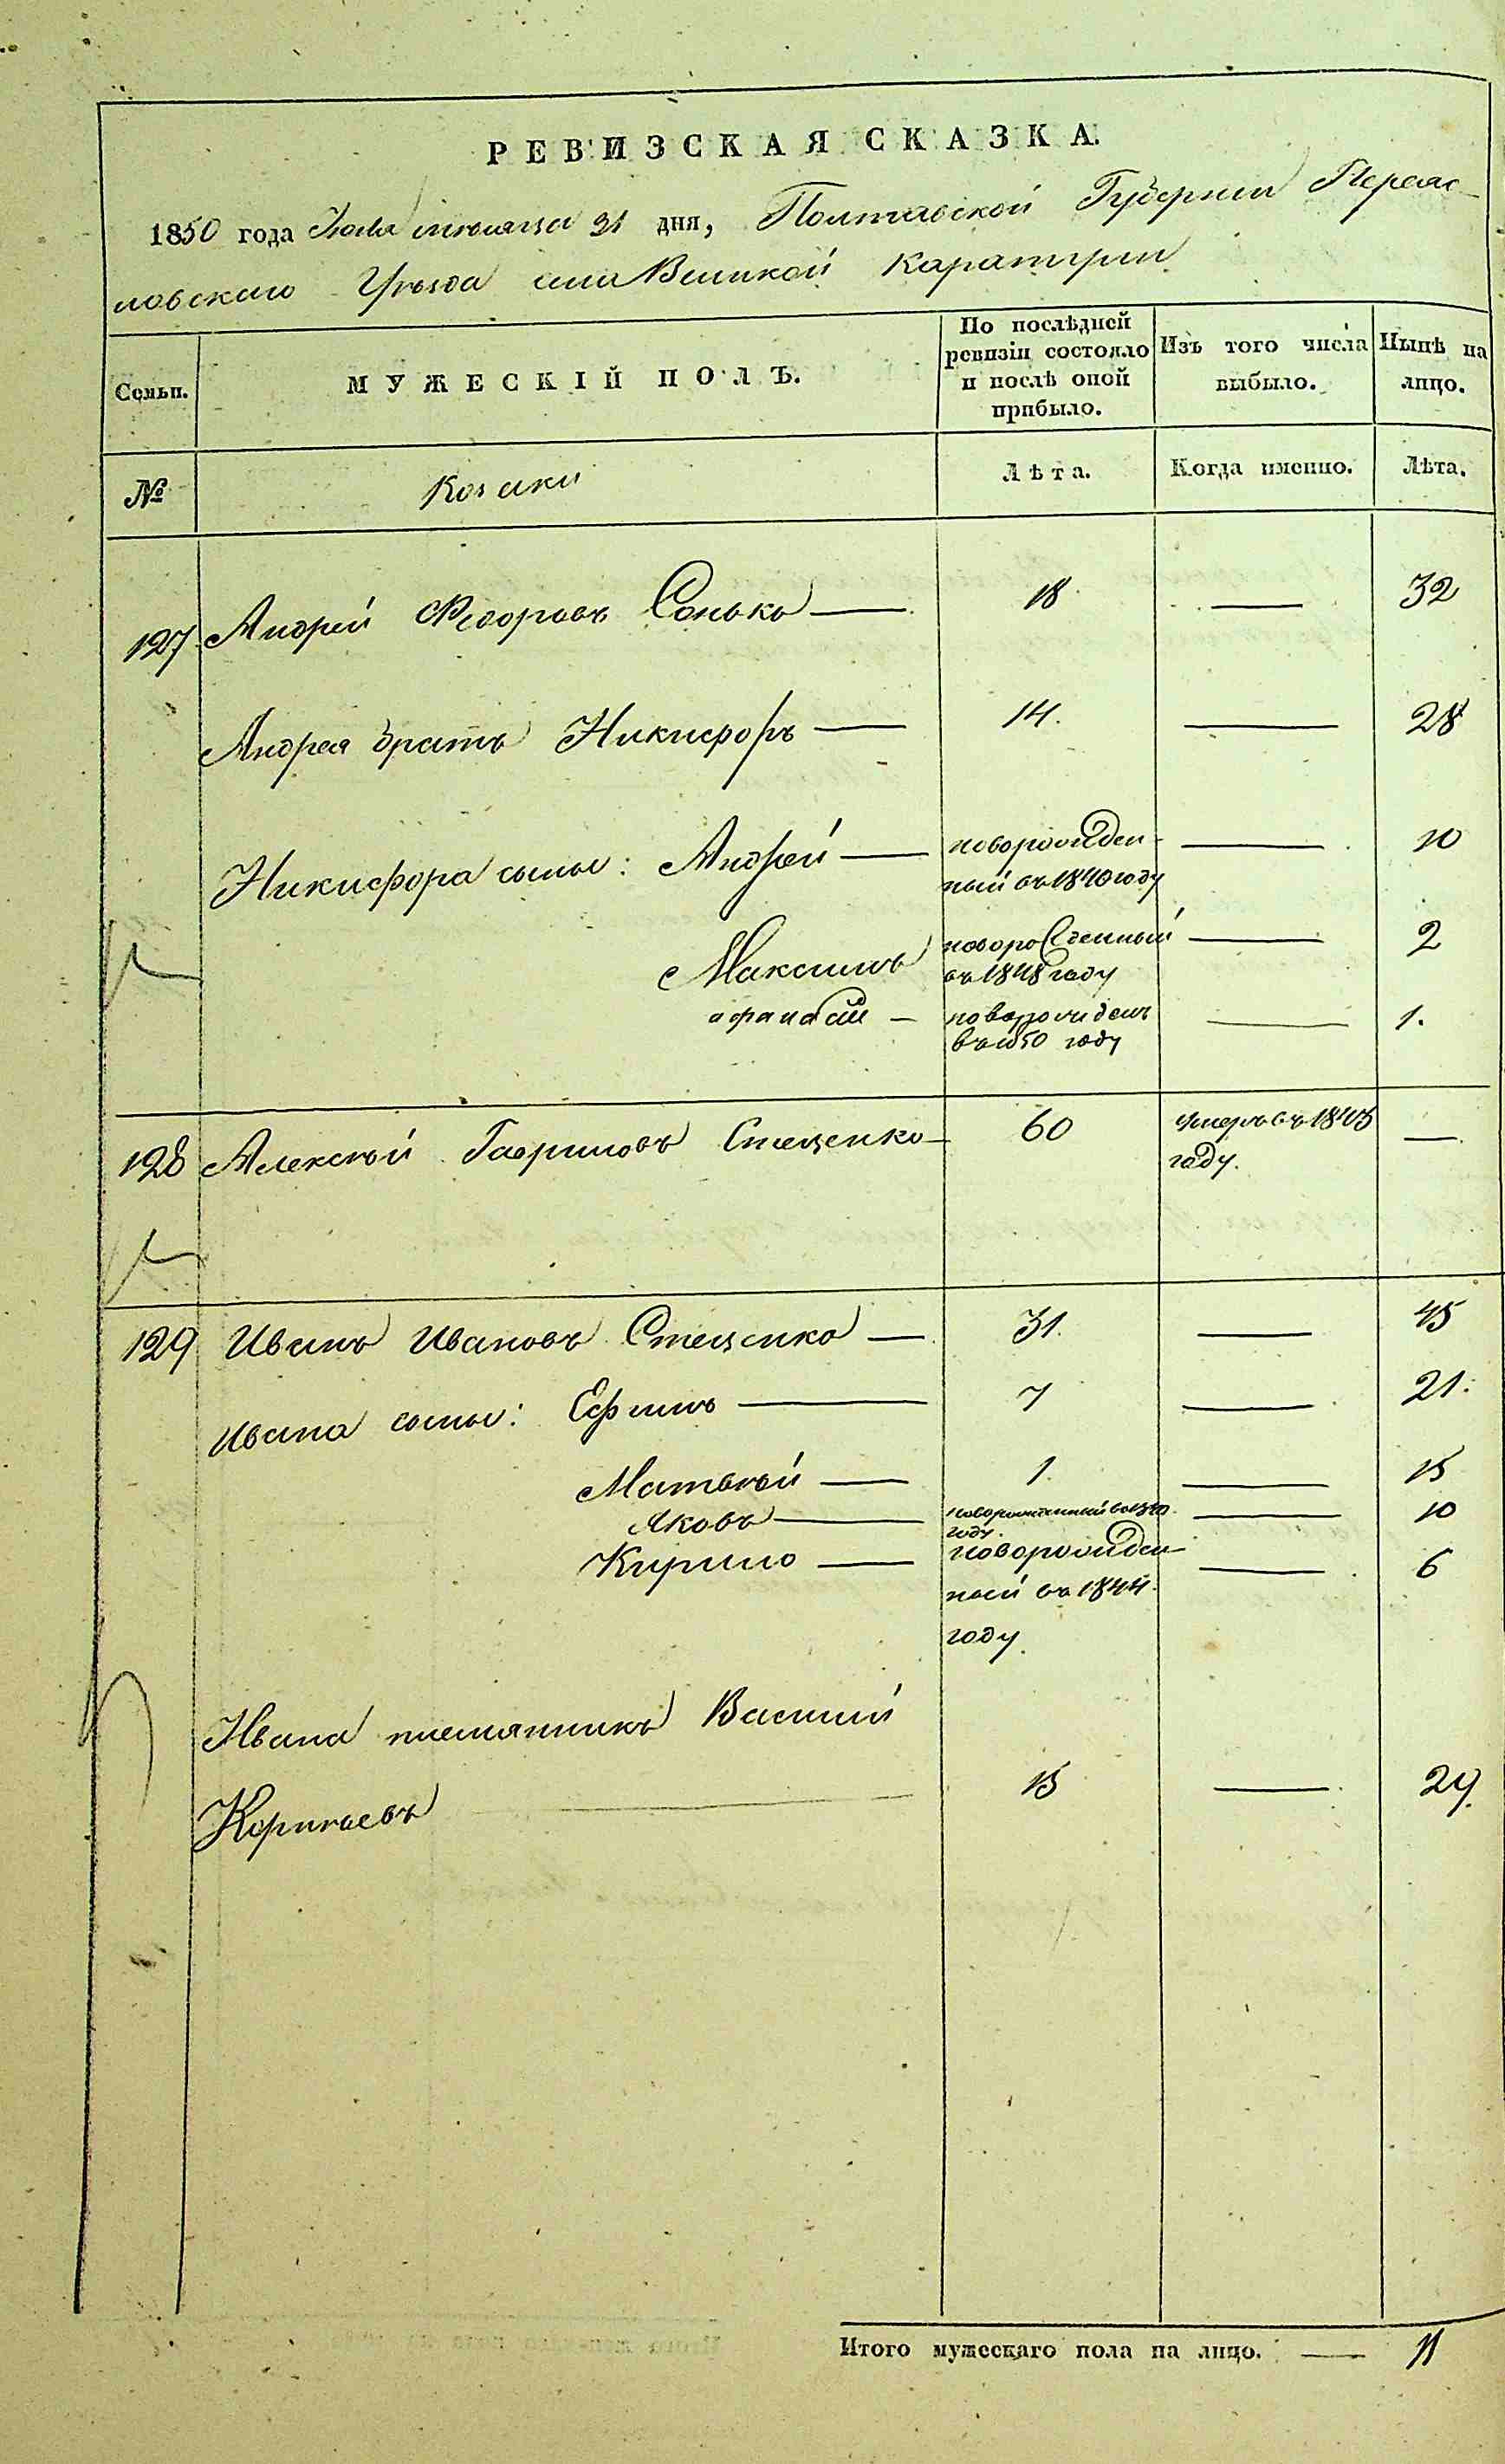 РЕВИЗСКАЯ СКАЗКА.
1850 года мѣсяца 31 дня, Полтавской Губернии Переяс-
ловскаго Уѣзда села Великой Каратури
Семьи.
МУЖЕСКІЙ ПОЛЪ.
По послѣдней
ревизіи состояло
и послѣ оной
прибыло.
Изъ того числа
выбыло.
Нынѣ на
лицо.
№
Козаки
Лѣта.
Когда именно.
Лѣта.
127 Андрей Федоровъ Сонько — 18 — 32
Андрея братъ Никифоръ — 14. — 28
Никифора сыны: Андрей — новорожден- — 10
ный въ 1840 году
Максимъ новорожденный — 2
въ 1848 году
афанасий — новорожденъ — 1.
въ 1850 году
128 Алексѣй Гавриловъ Стеценко — 60 умеръ въ —
году.
129 Иванъ Ивановъ Стеценко — 31. — 45
Ивана сыны: Ефимъ — 7 — 21.
Матвѣй — 1. — 15
Яковъ — новорожденный — 10
году.
Кирило — новорожден- — 6
ный въ 1844.
году.
Ивана племянникъ Василий
Корнѣевъ — 15 — 29.
Итого мужескаго пола на лицо. — 11